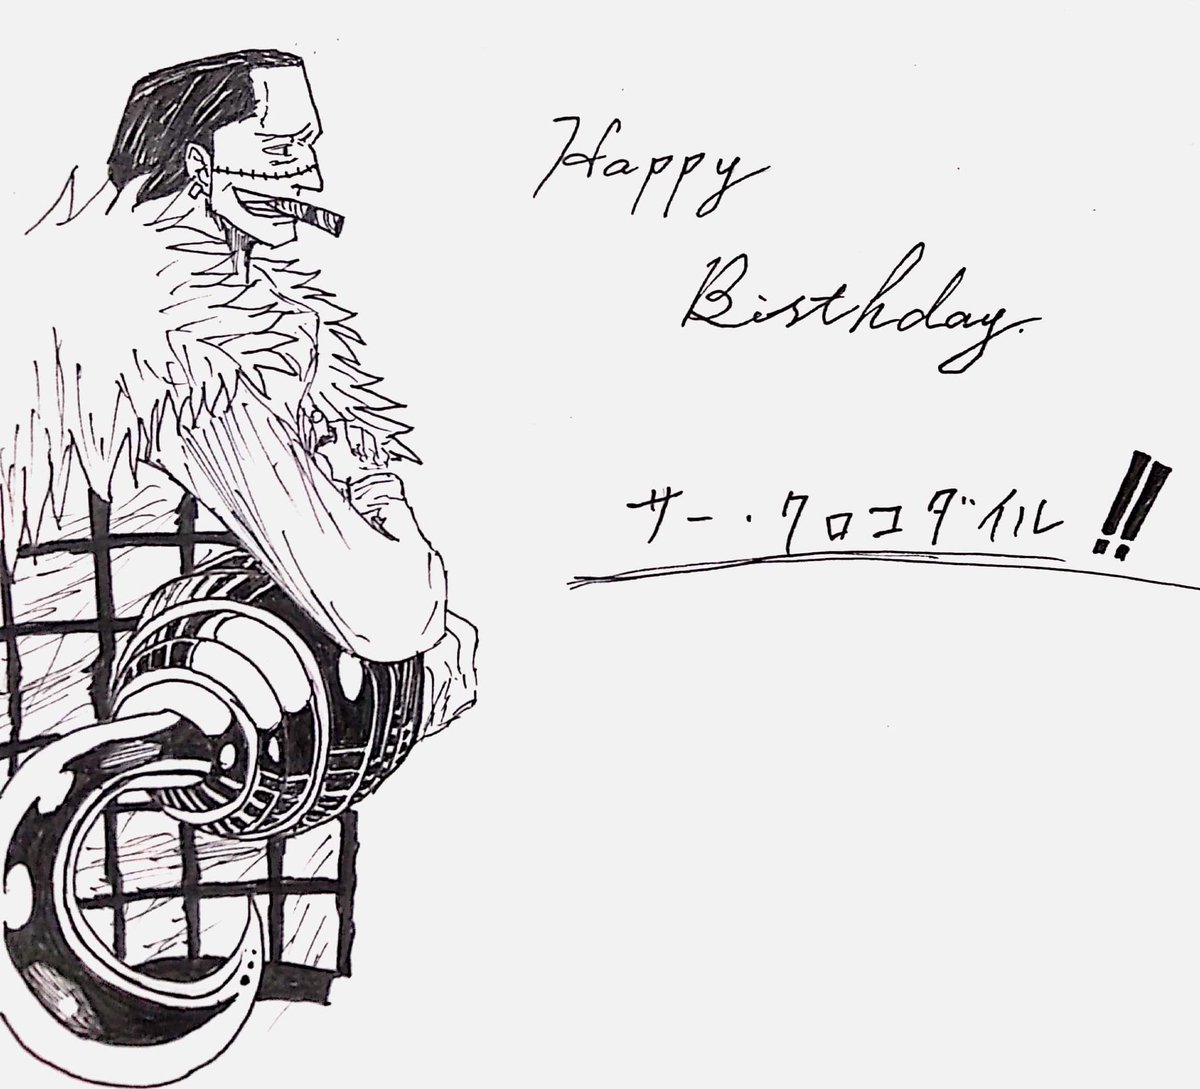 Happy
Birthday.
サー・クロコダイル!!